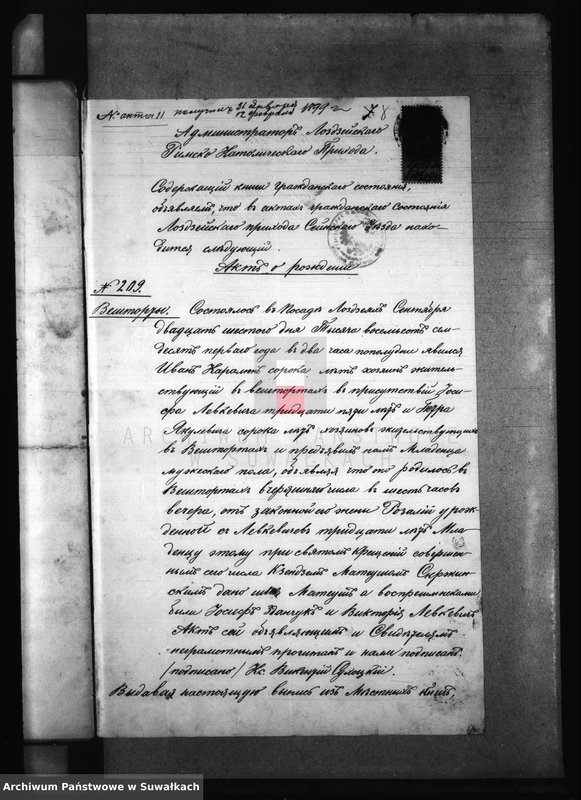 № акта 11 получил 31 Января / 12 Февраля 1899 г
Администраторъ Лоздзейскаго
Римско Католическаго Прихода.
Содержащій книги гражданскаго состоянія,
объявляетъ, что въ актахъ гражданскаго Состоянія
Лоздзейскаго прихода Сейнскаго Уѣзда нахо-
дится слѣдующій.
Актъ о рожденіи
№ 209.
Вешторты. Состоялось въ Посадѣ Лоздзеяхъ Сентября
двадцать шестого дня Тысяча восемьсотъ сем-
десятъ перваго года въ два часа пополудни явился
Иванъ сорока лѣтъ хозяинъ житель-
ствующій въ Вештортахъ въ присутствіи Іоси-
фа Левкевича тридцати пяти лѣтъ и Петра
Якулевича сорока лѣтъ хозяиновъ жительствующихъ
въ Вештортахъ и предъявилъ намъ Младенца
мужескаго пола, объявляя что оно родилось въ
Вештортахъ вчерашняго числа въ шесть часовъ
вечера, отъ законной его жены Розаліи урож-
денной съ Левкевичовъ тридцати лѣтъ Мла-
денцу этому при святомъ крещеніи совершен-
нымъ сего числа Ксендземъ Матеушомъ
скимъ дано имя Матеушъ а воспреемниками
были Іосифъ и Викторія Левкевичъ
Актъ сей объявляющимъ и Свидѣтелямъ
неграмотнымъ прочитанъ и нами подписанъ
/подписано/ Кс. Викентій Сулоцкій.
Выдавая настоящую выпись изъ Мѣстныхъ Книгъ,
ARCHIWUM PAŃSTWOWE
Archiwum Państwowe w Suwałkach